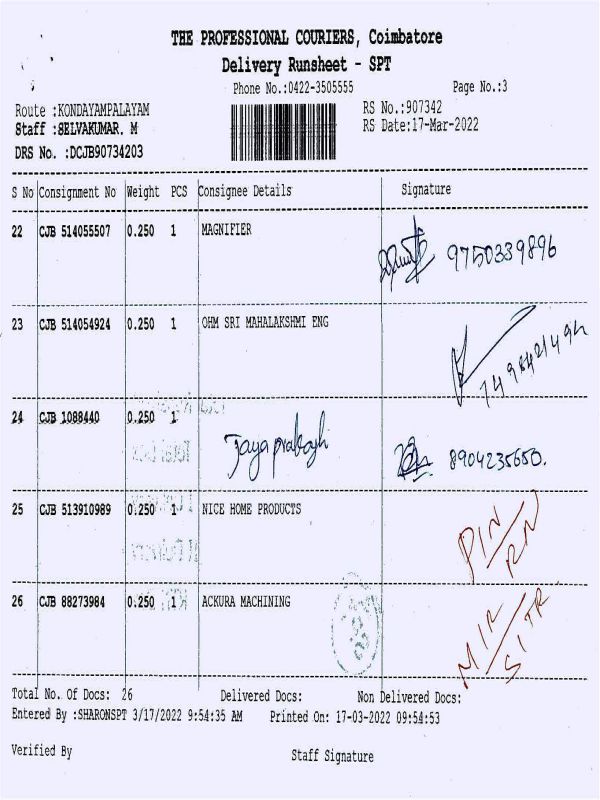 THE PROFESSIONAL COURIERS, Coimbatore
Delivery Runsheet - SPT
Phone No.:0422-3505555 Page No.:3
Route :KONDAYAMPALAYAM RS No.:907342
Staff :SELVAKUMAR. M RS Date:17-Mar-2022
DRS No. :DCJB90734203
S No Consignment No Weight PCS Consignee Details Signature
22 CJB 514055507 0.250 1 MAGNIFIER 9750339896
23 CJB 514054924 0.250 1 OHM SRI MAHALAKSHMI ENG
24 CJB 1088440 0.250 1 Jaya prakash 8904235650.
25 CJB 513910989 0.250 1 NICE HOME PRODUCTS PIN/RN
26 CJB 88273984 0.250 1 ACKURA MACHINING
Total No. Of Docs: 26 Delivered Docs: Non Delivered Docs:
Entered By :SHARONSPT 3/17/2022 9:54:35 AM Printed On: 17-03-2022 09:54:53
Verified By Staff Signature